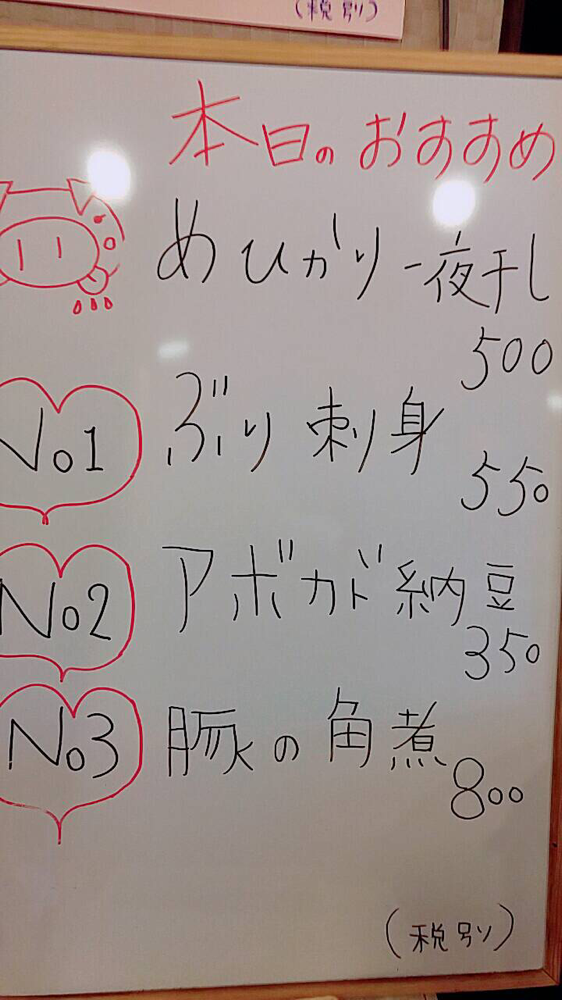 (税別)
本日のおすすめ
めひかり一夜干し
500
No1 ぶり刺身
550
No2 アボカド納豆
350
No3 豚の角煮
800
(税別)